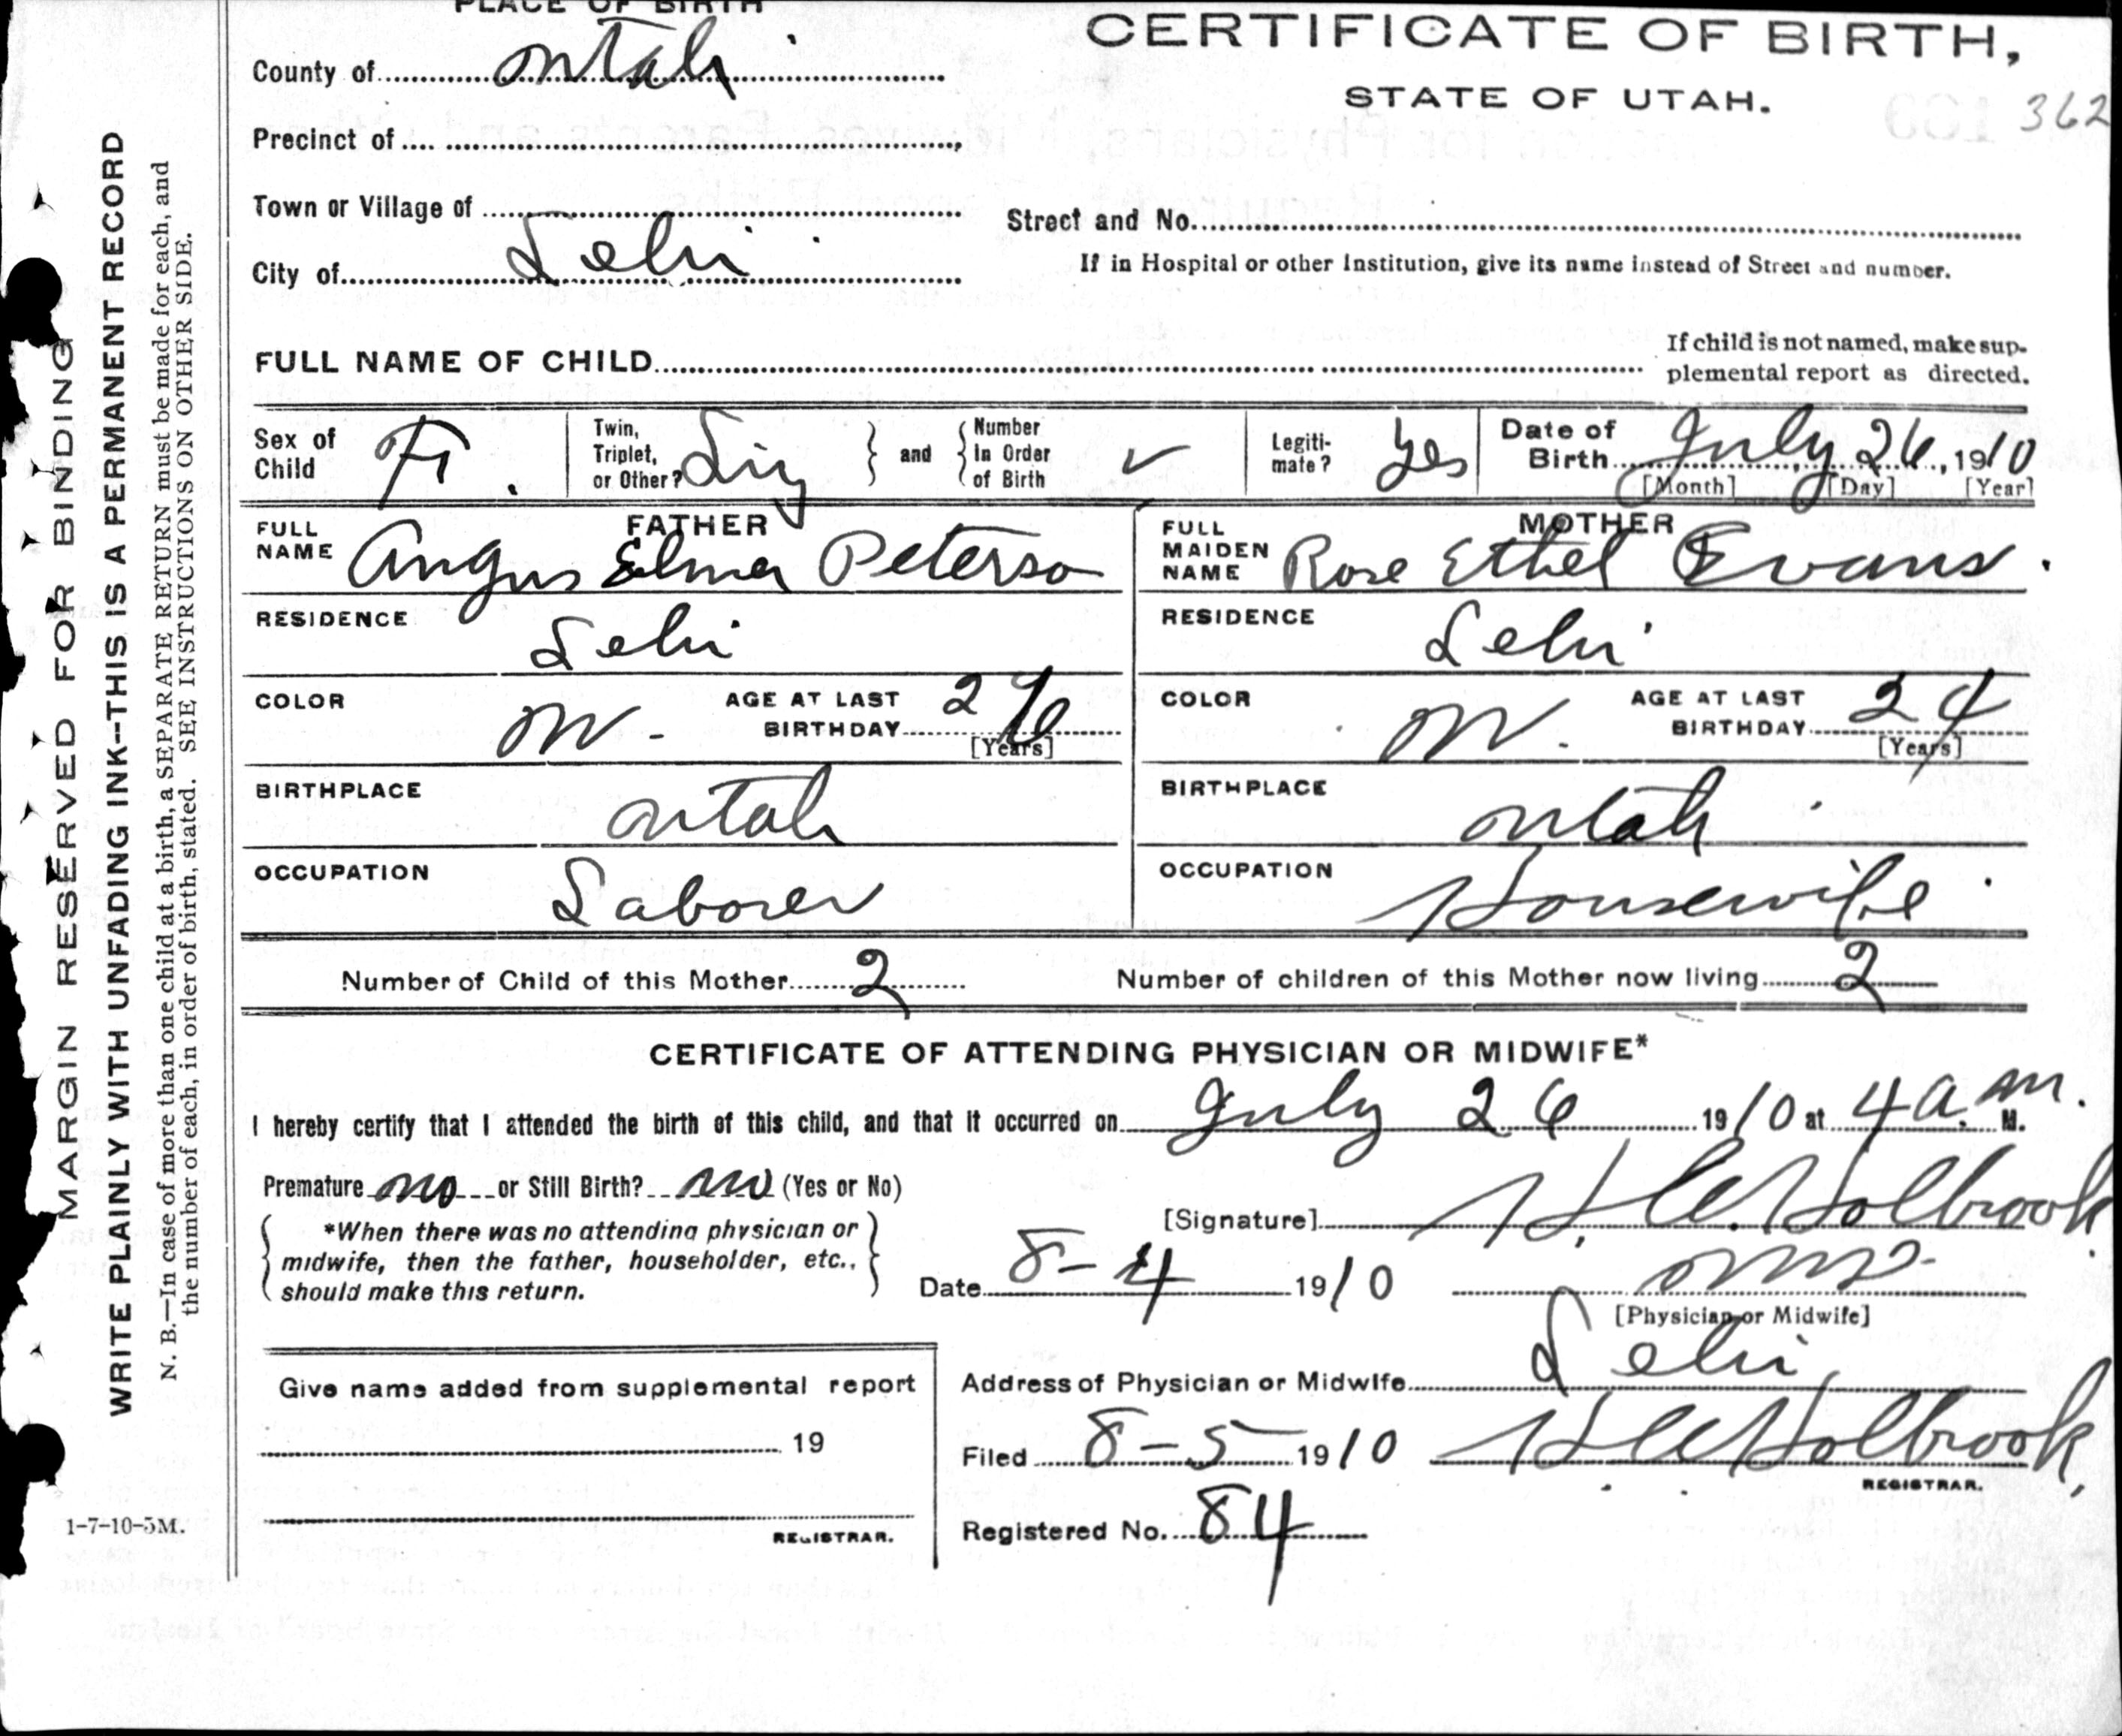 PLACE OF BIRTH
CERTIFICATE OF BIRTH,
STATE OF UTAH.
362
County of Utah
Precinct of
Town or Village of
Street and No.
City of Lehi
If in Hospital or other Institution, give its name instead of Street and number.
FULL NAME OF CHILD
If child is not named, make sup-
plemental report as directed.
Sex of Child F.
Twin, Triplet, or Other? Sing
and
Number In Order of Birth ✓
Legiti-mate? Yes
Date of Birth July 26, 1910
[Month] [Day] [Year]
FATHER
FULL NAME Angus Elmer Peterson
MOTHER
FULL MAIDEN NAME Rose Ethel Evans.
RESIDENCE Lehi
RESIDENCE Lehi
COLOR W.
AGE AT LAST BIRTHDAY 26
[Years]
COLOR W.
AGE AT LAST BIRTHDAY 24
[Years]
BIRTHPLACE Utah
BIRTHPLACE Utah
OCCUPATION Laborer
OCCUPATION Housewife.
Number of Child of this Mother 2
Number of children of this Mother now living 2
CERTIFICATE OF ATTENDING PHYSICIAN OR MIDWIFE*
I hereby certify that I attended the birth of this child, and that it occurred on July 26 1910 at 4 a.m. M.
Premature no or Still Birth? no (Yes or No)
*When there was no attending physician or
midwife, then the father, householder, etc.,
should make this return.
[Signature] H. C. Holbrook
Date 8-4 1910
MD.
[Physician or Midwife]
Give name added from supplemental report
19
REGISTRAR.
Address of Physician or Midwife Lehi
Filed 8-5 1910 Holbrook,
REGISTRAR.
Registered No. 84
MARGIN RESERVED FOR BINDING
WRITE PLAINLY WITH UNFADING INK--THIS IS A PERMANENT RECORD
N. B.—In case of more than one child at a birth, a SEPARATE RETURN must be made for each, and
the number of each, in order of birth, stated. SEE INSTRUCTIONS ON OTHER SIDE.
1-7-10-5M.